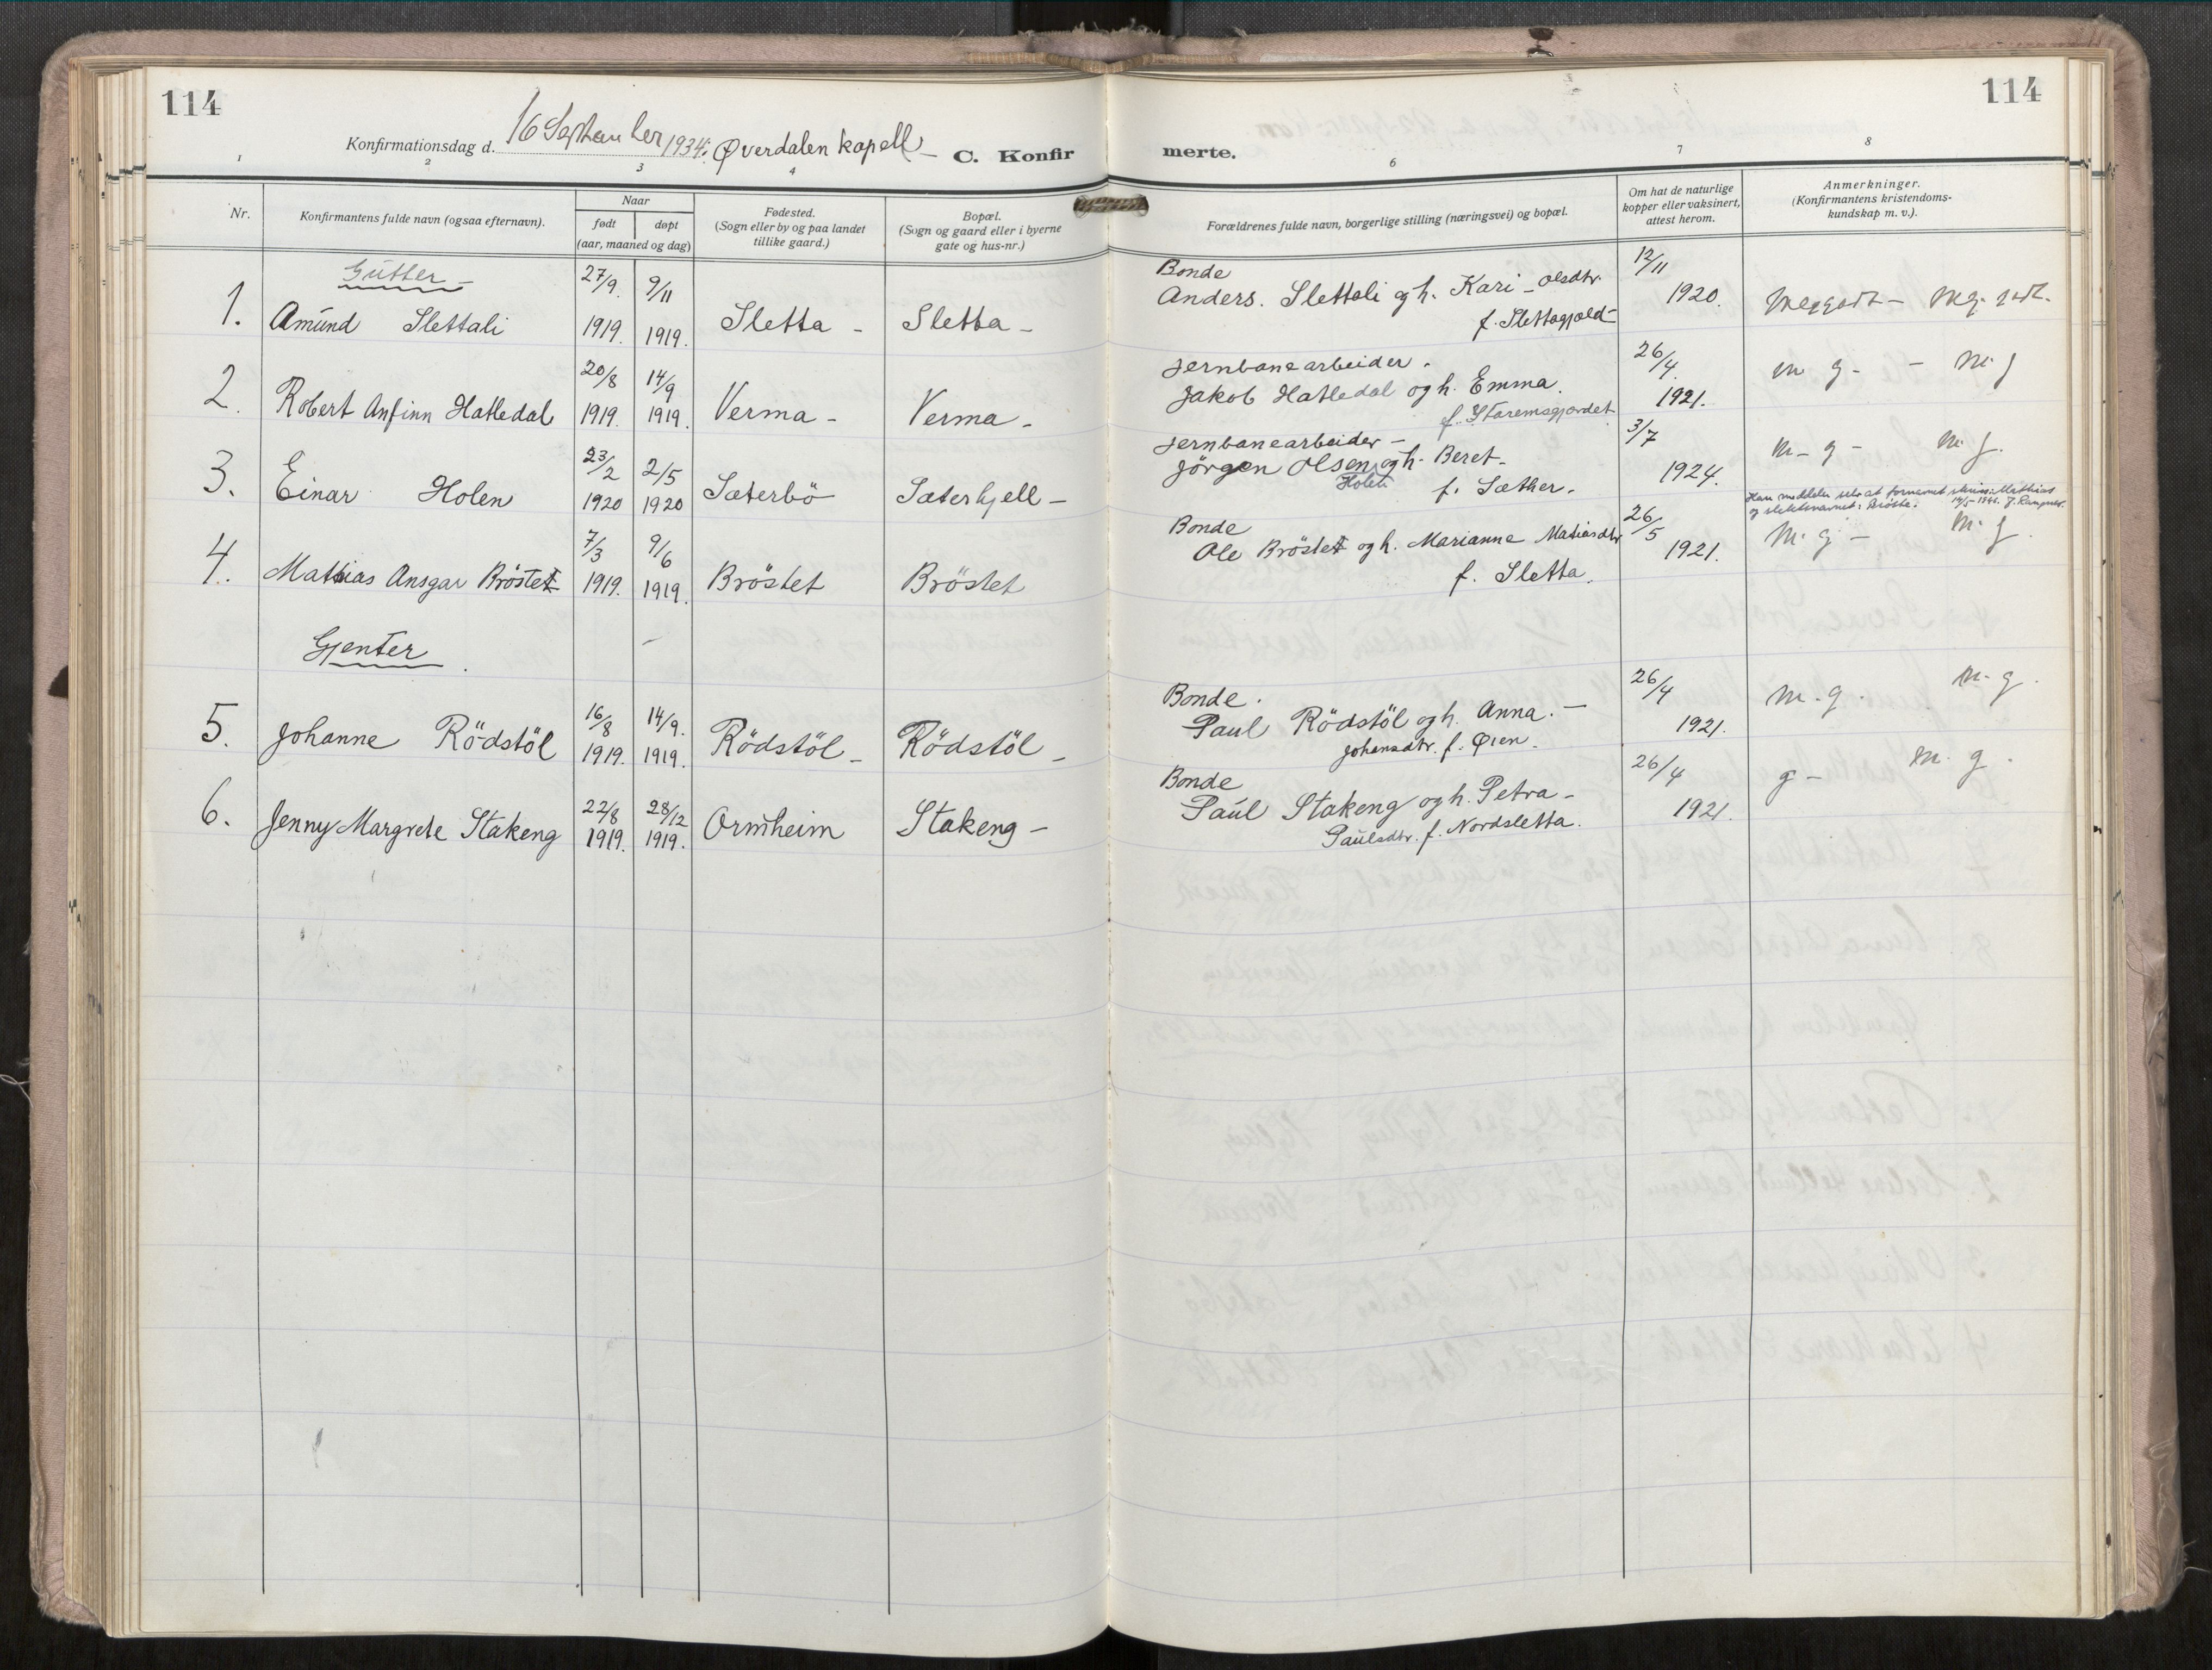 114
114
Konfirmationsdag d. 16 September 1934. Øverdalen kapell –
C. Konfir
merte.
1
2
3
4
6
7
8
Nr.
Konfirmantens fulde navn (ogsaa efternavn).
Naar
født
døpt
(aar, maaned og dag)
Fødested.
(Sogn eller by og paa landet
tillike gaard.)
Bopæl.
(Sogn og gaard eller i byerne
gate og hus-nr.)
Forældrenes fulde navn, borgerlige stilling (næringsvei) og bopæl.
Om hat de naturlige
kopper eller vaksinert,
attest herom.
Anmerkninger.
(Konfirmantens kristendoms-
kundskap m. v.).
Gutter –
27/9. 9/11 Bonde 12/11
1. Amund Slettali 1919. 1919. Sletta – Sletta – Anders. Slettali og h. Kari – Olsdtr. 1920. Meggodt – Meg. godt.
f. Slettagjæld –
20/8 14/9 Jernbanearbeider. 26/4.
2. Robert Anfinn Hatledal 1919. 1919. Verma – Verma – Jakob Hatledal og h. Emma. 1921. m g – – m g
f. Staremsgjærdet
23/2 2/5 Jernbanearbeider – 3/7
3. Einar Holen 1920 1920 Sæterbö Sæterhjell – Jörgen Olsen og h. Beret – 1924. m – g – m g.
Holen f. Sæther.
Han meddeler selv at fornavnet skrives: Mathias
og slektsnavnet: Brøste. 14/5-1946.
7/3 9/6 Bonde 26/5
4. Mathias Ansgar Bröstet 1919. 1919. Bröstet Bröstet Ole Bröstet og h. Marianne Matiasdtr 1921. M. g – M. g.
f. Sletta.
Gjenter –
16/8 14/9. Bonde. 26/4
5. Johanne Rödstöl 1919. 1919. Rödstöl – Rödstöl – Paul Rödstöl og h. Anna. – 1921. m. g. m. g.
Johansdtr. f. Øien.
22/8 28/12 Bonde 26/4
6. Jenny Margrete Stakeng 1919. 1919. Ormheim Stakeng – Paul Stakeng og h. Petra – 1921. g – m. g.
Paulsdtr. f. Nordsletta.